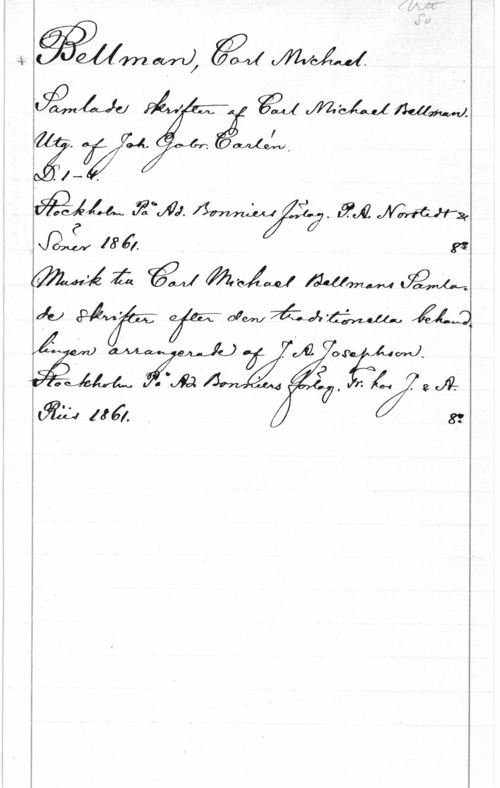 Bellman, Carl Michael.
Samlade skrifter af Carl Michael Bellman.
Utg. af Joh. Gabr. Carlén.
D. 1-4.
Stockholm På Ad. Bonniers förlag. P. A. Norstedt &
Söner 1861. 8º
Musik till Carl Michael Bellmans Samla-
de skrifter efter den traditionella behand
lingen arrangerade af J. A. Josephson.
Stockholm På Ad. Bonniers förlag. Tr. hos J. & A.
Riis 1861. 8º